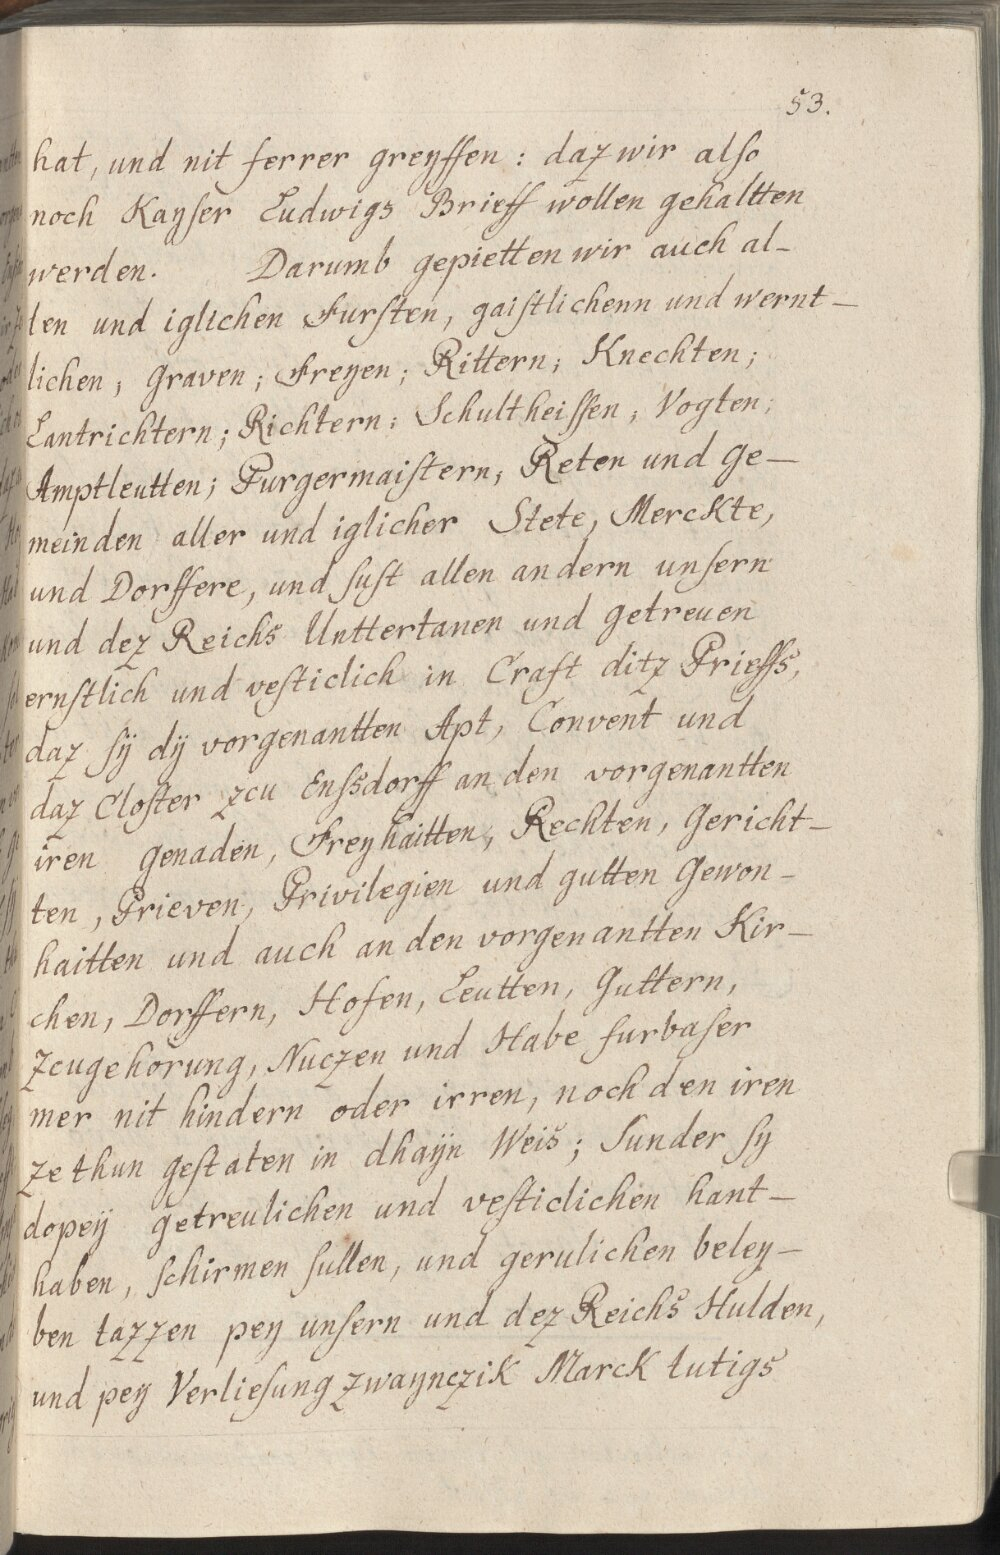 53.
hat, und nit ferrer greyffen : daz wir also
noch Kayser Ludwigs Brieff wollen gehaltten
werden. Darumb gepietten wir auch al-
len und iglichen Fursten, gaistlichenn und wernt-
lichen, Graven; Freyen; Rittern; Knechten;
Lantrichtern; Richtern; Schultheissen, Vogten;
Amptleutten; Purgermaistern, Reten und Ge-
meinden aller und iglicher Stete, Merckte,
und Dorffere, und sust allen andern unsern
und dez Reichs Unttertanen und getreuen
ernstlich und vesticlich in Craft ditz Prieffs,
daz sÿ dÿ vorgenantten Apt, Convent und
daz Closter zcu Enssdorff an den vorgenantten
iren genaden, Freyhaitten, Rechten, Gericht-
ten, Prieven, Privilegien und gutten Gewon-
haitten und auch an den vorgenantten Kir-
chen, Dorffern, Hofen, Leutten, Guttern,
Zcugehorung, Nuczen und Habe furbaser
mer nit hindern oder irren, noch den iren
ze thun gestaten in dhaÿn Weis; Sunder sy
dopeÿ getreulichen und vesticlichen hant-
haben, schirmen sullen, und gerulichen beley-
ben lazzen pey unsern und dez Reichs Hulden,
und pey Verliesung zwaynczik Marck lutigs